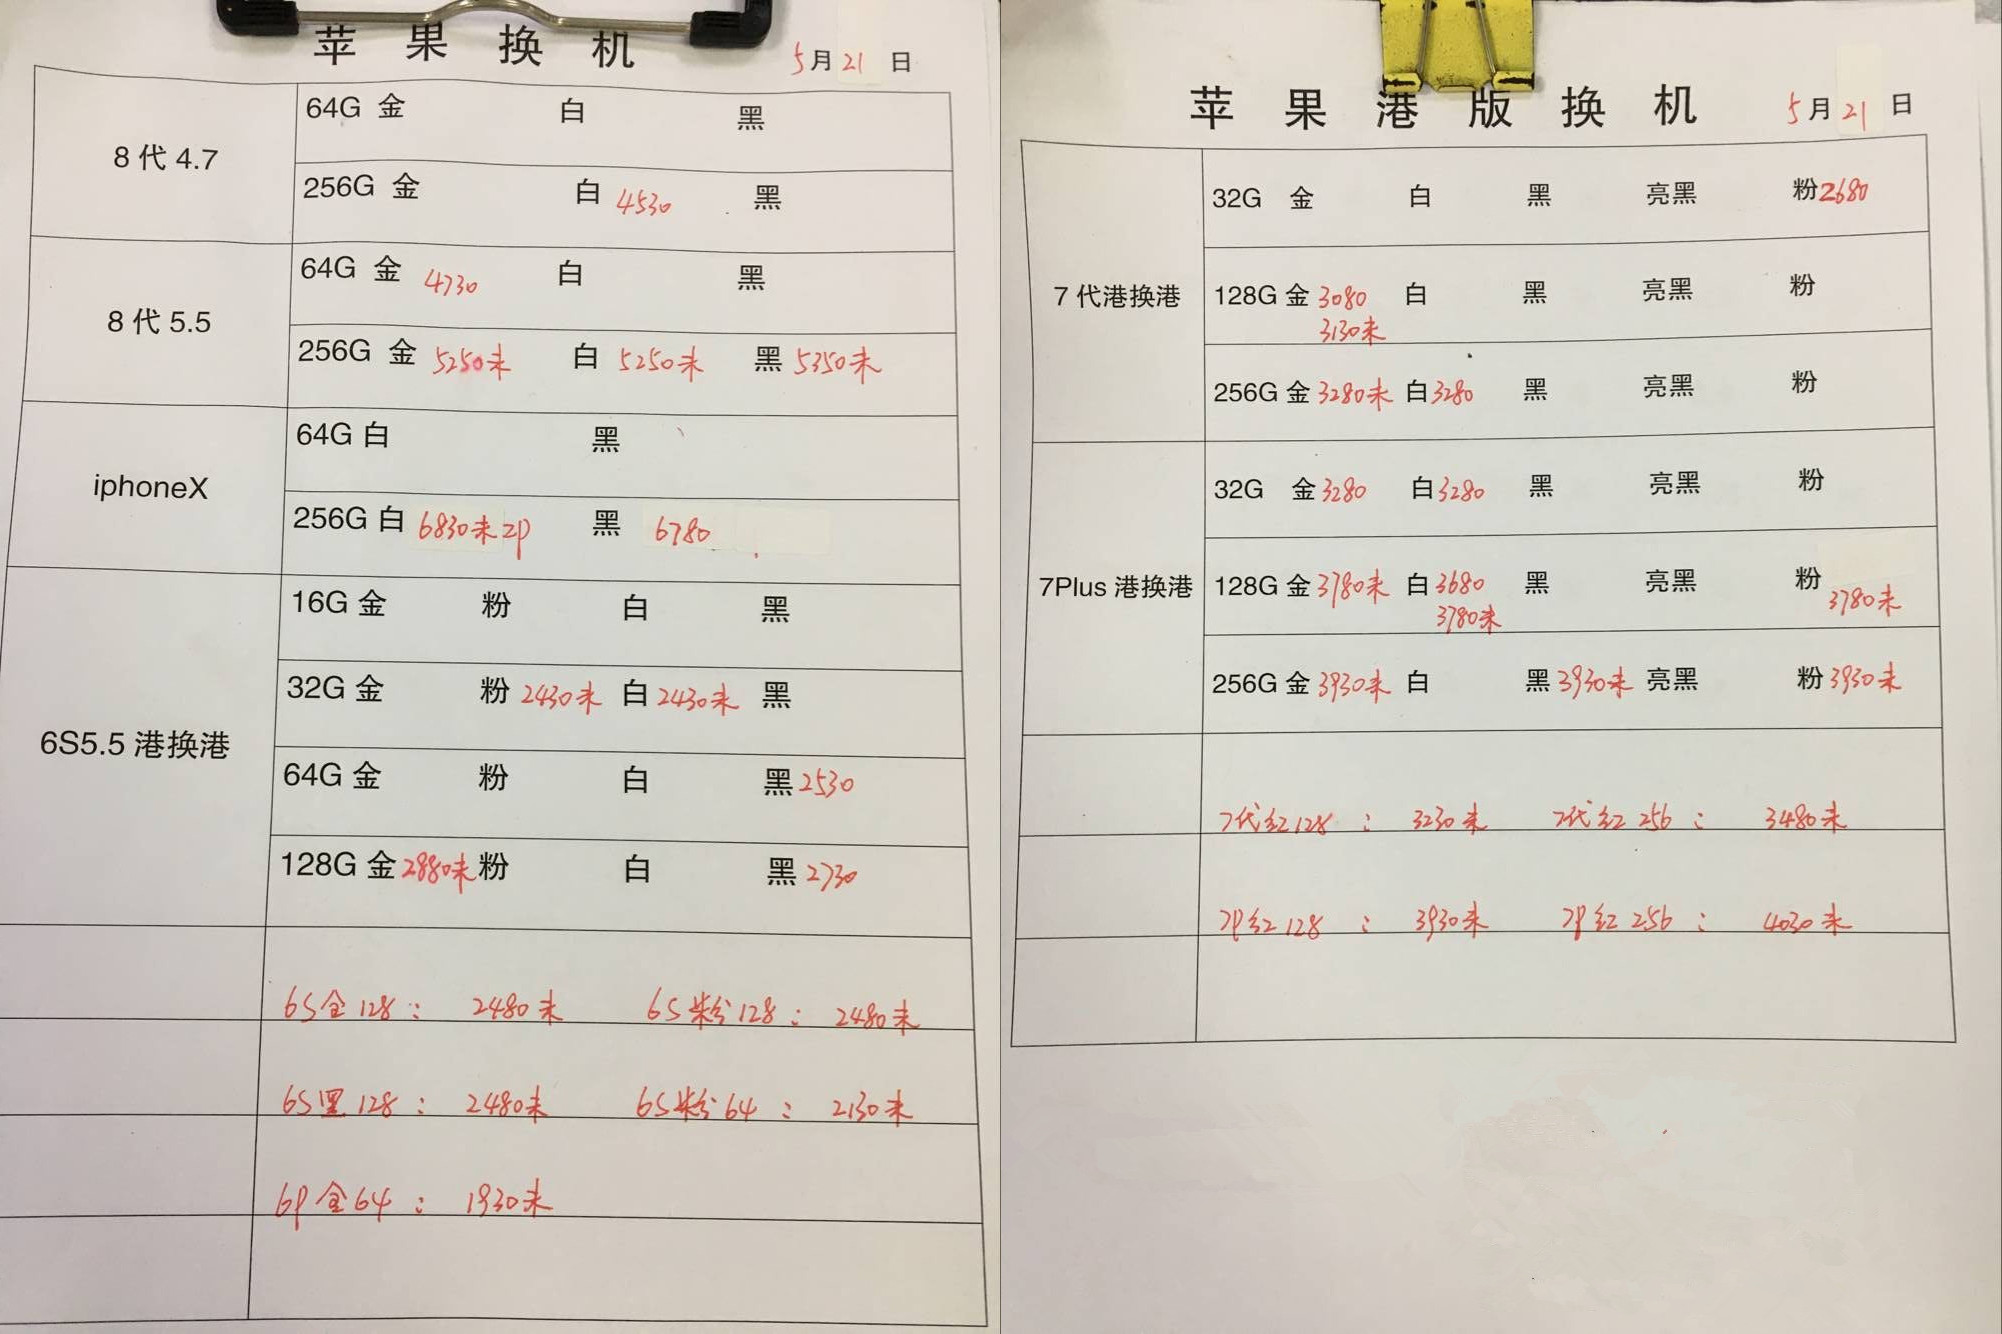 苹果换机 5月21日
8代4.7
64G 金 白 黑
256G 金 白 4530 黑
8代5.5
64G 金 4730 白 黑
256G 金 5250未 白 5250未 黑 5350未
iphoneX
64G 白 黑
256G 白 6830未2P 黑 6780
6S5.5港换港
16G 金 粉 白 黑
32G 金 粉 2430未 白 2430未 黑
64G 金 粉 白 黑 2530
128G 金 2880未 粉 白 黑 2730
6S金128: 2480未 6S粉128: 2480未
6S黑128: 2480未 6S粉64: 2130未
6P金64: 1930未
苹果港版换机 5月21日
7代港换港
32G 金 白 黑 亮黑 粉 2680
128G 金 3080 白 黑 亮黑 粉
3130未
256G 金 3280未 白 3280 黑 亮黑 粉
7Plus港换港
32G 金 3280 白 3280 黑 亮黑 粉
128G 金 3780未 白 3680 黑 亮黑 粉 3780未
3780未
256G 金 3930未 白 黑 3930未 亮黑 粉 3930未
7代红128: 3230未 7代红256: 3480未
7P红128: 3930未 7P红256: 4030未